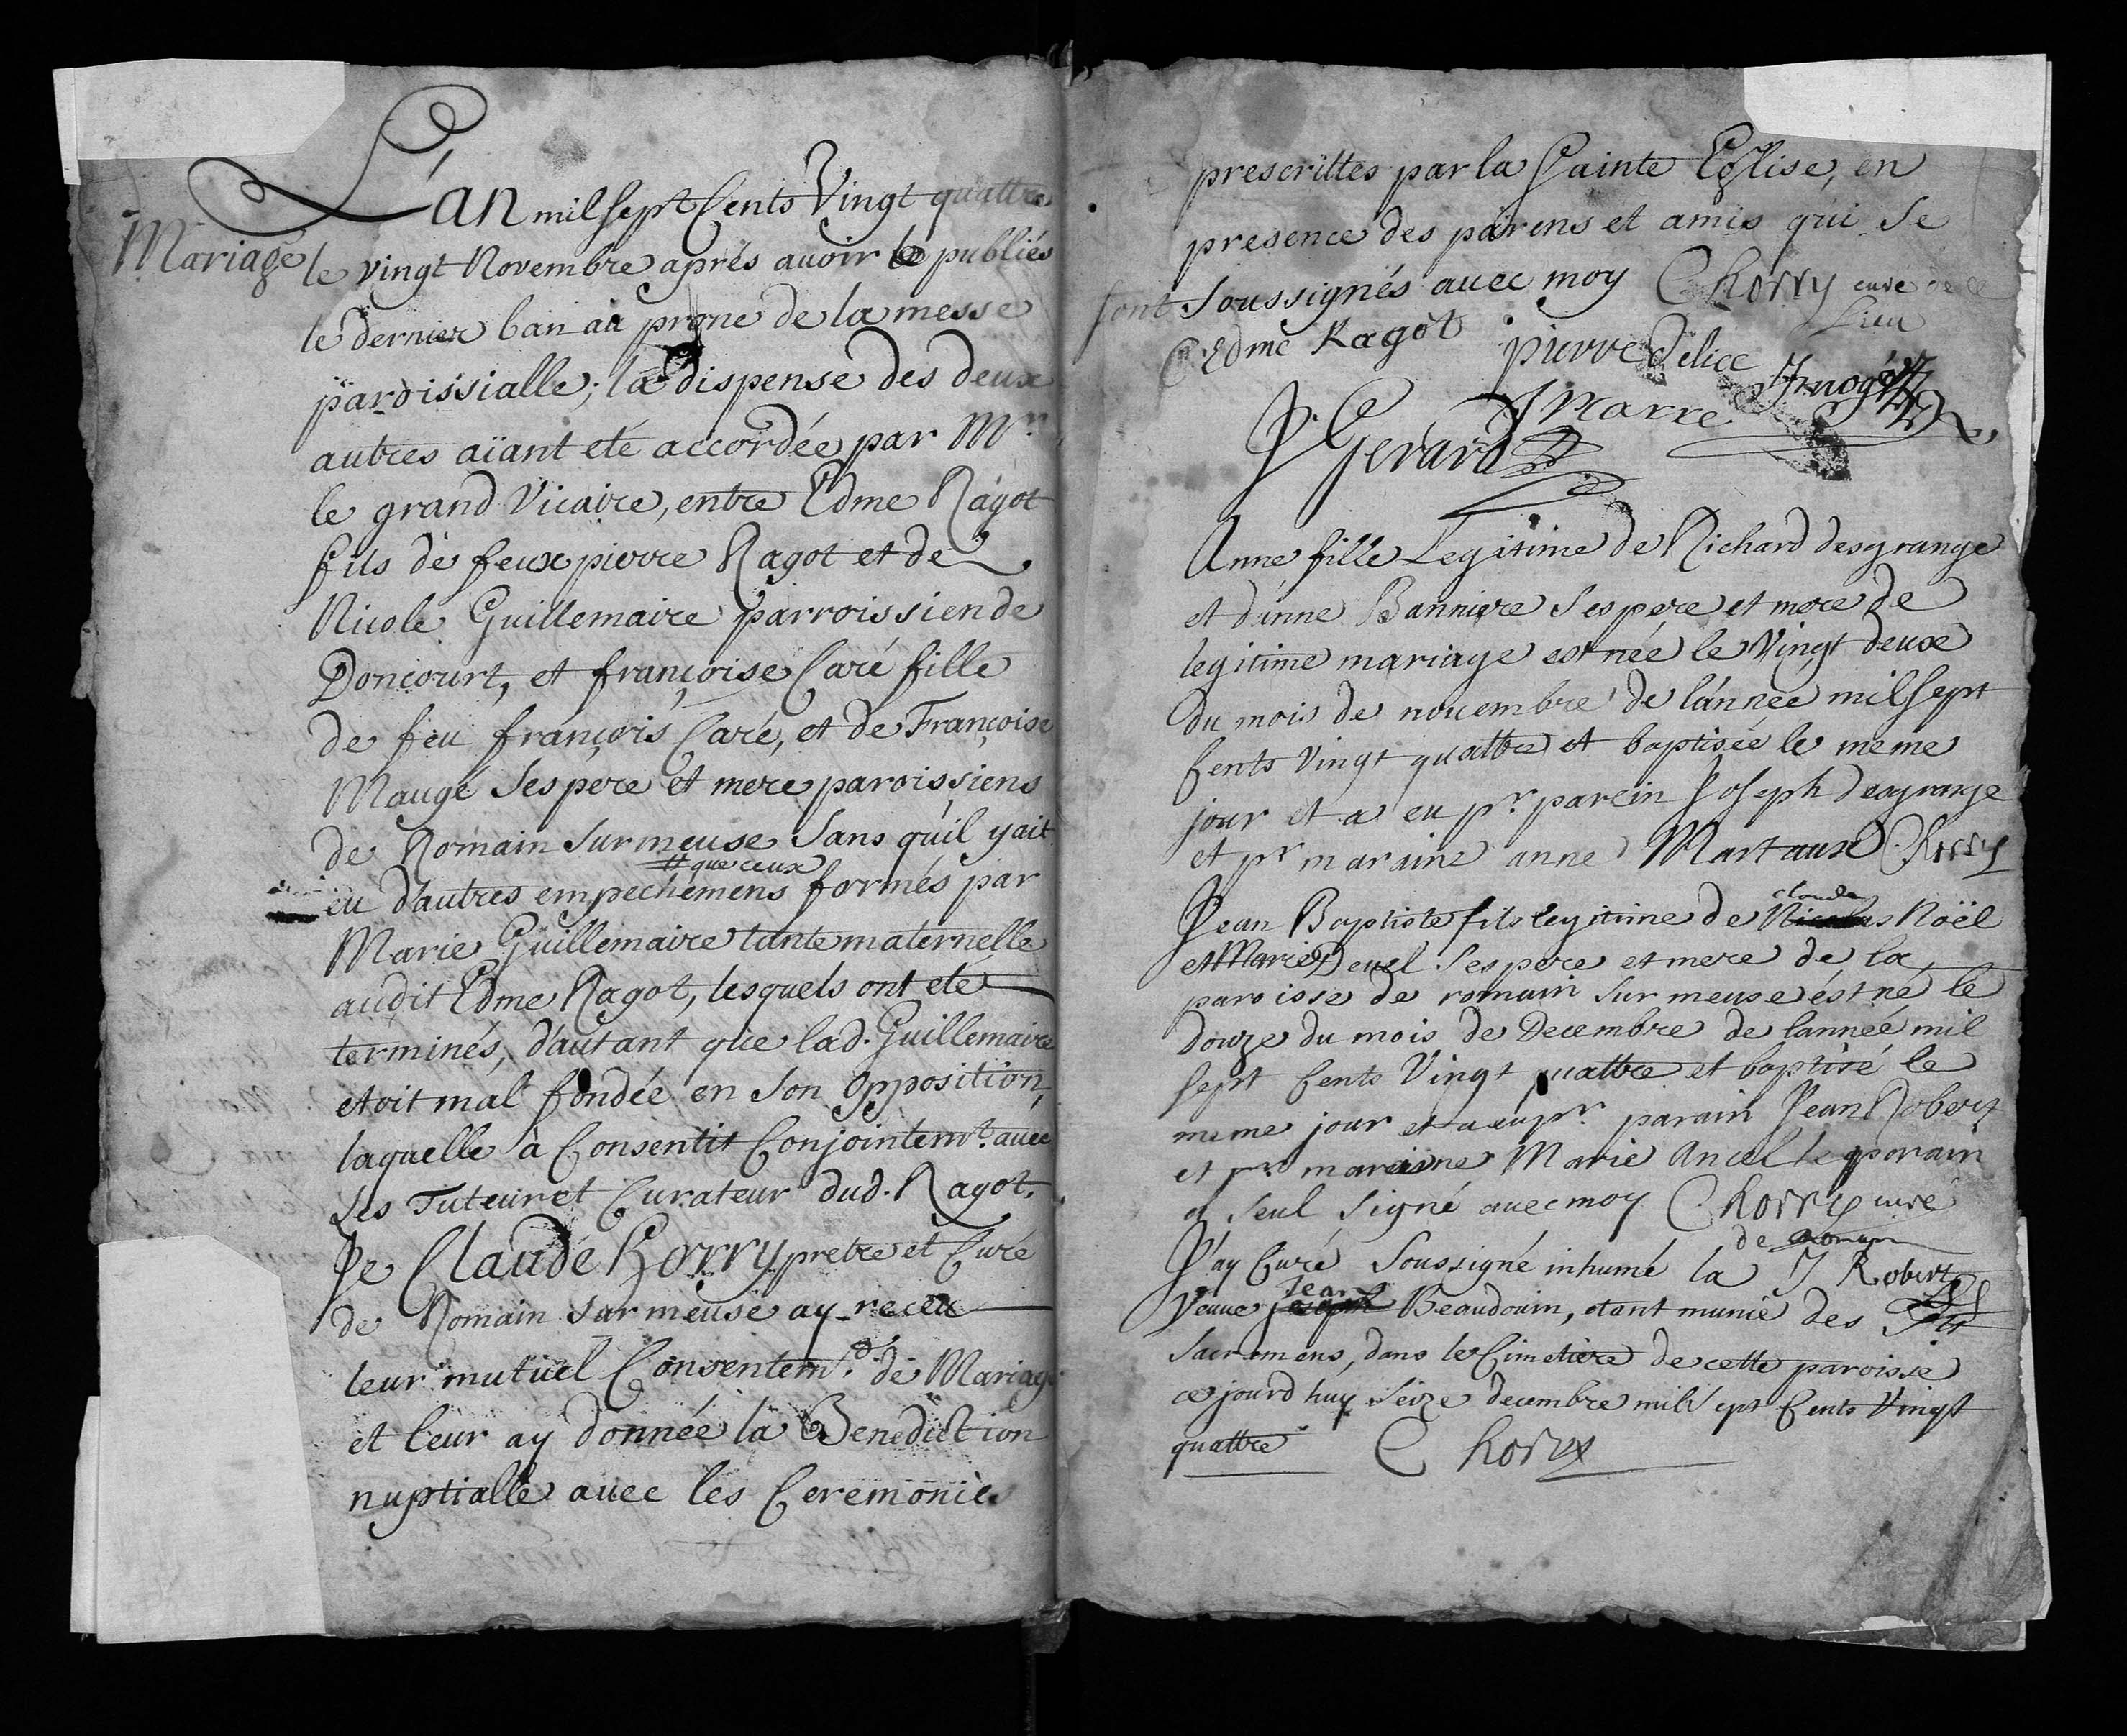 Mariage
L'an mil sept Cents Vingt quattre
le vingt Novembre aprés auoir publiés
le dernier ban au prone de la messe
paroissialle; la dispense des deux
autres aïant eté accordée par Mr.
le grand Vicaire, entre Edme Ragot
fils de feux pierre Ragot et de
Nicole Guillemaire parroissien de
Doncourt, et françoise Caré fille
de feu françois Caré, et de Françoise
Maugé Ses pere et mere paroissiens
de Romain Sur meuse Sans qu'il y ait
# que ceux
eu d'autres empechemens formés par
Marie Guillemaire tante maternelle
audit Edme Ragot, lesquels ont eté
terminés, d'autant que lad. Guillemaire
etoit mal fondée en Son Opposition,
laquelle à Consentit Conjointemt. auec
Les Tuteur et Curateur dud. Ragot.
Je Claude Horry pretre et Curé
de Romain Sur meuse ay receu
leur mutuel Consentemt. de Mariage
et leur ay donnée la Benediction
nuptialle auec les Ceremonies
prescrittes par la Sainte Eglise, en
presence des parens et amis qui Se
Sont Soussignés auec moy C horry curé de ce
Lieu
Edme Ragot pierre Delice
J Marre
P. Gerard
Anne fille Legitime de Richard desgrange
et d'anne Banniere Ses pere et mere de
legitime mariage est née le Vingt deux
du mois de nouembre de l'année mil Sept
Cents Vingt quattre et baptisée le meme
jour et a eu pr. parein Joseph desgrange
et pr maraine anne Martaux C horry
claude
Jean Baptiste fils legitime de Nicolas Noël
et Marie Deuel Ses pere et mere de la
paroisse de romain Sur meuse ést né le
douze du mois de Decembre de l'année mil
Sept Cents Vingt quattre et baptisé le
meme jour et a eu pr. parain Jean Robert
et pr. maraine Marie Ancel le parain
a Seul Signé auec moy C horry curé
de romain
J Robert
J'ay Curé Soussigné inhumé la
Jean
Veuue Joseph Beaudouin, etant munie des Sts
Sacremens, dans le Cimetiere de cette paroisse
ce jourd'huy Seize decembre mil Sept Cents Vingt
quattre C horry